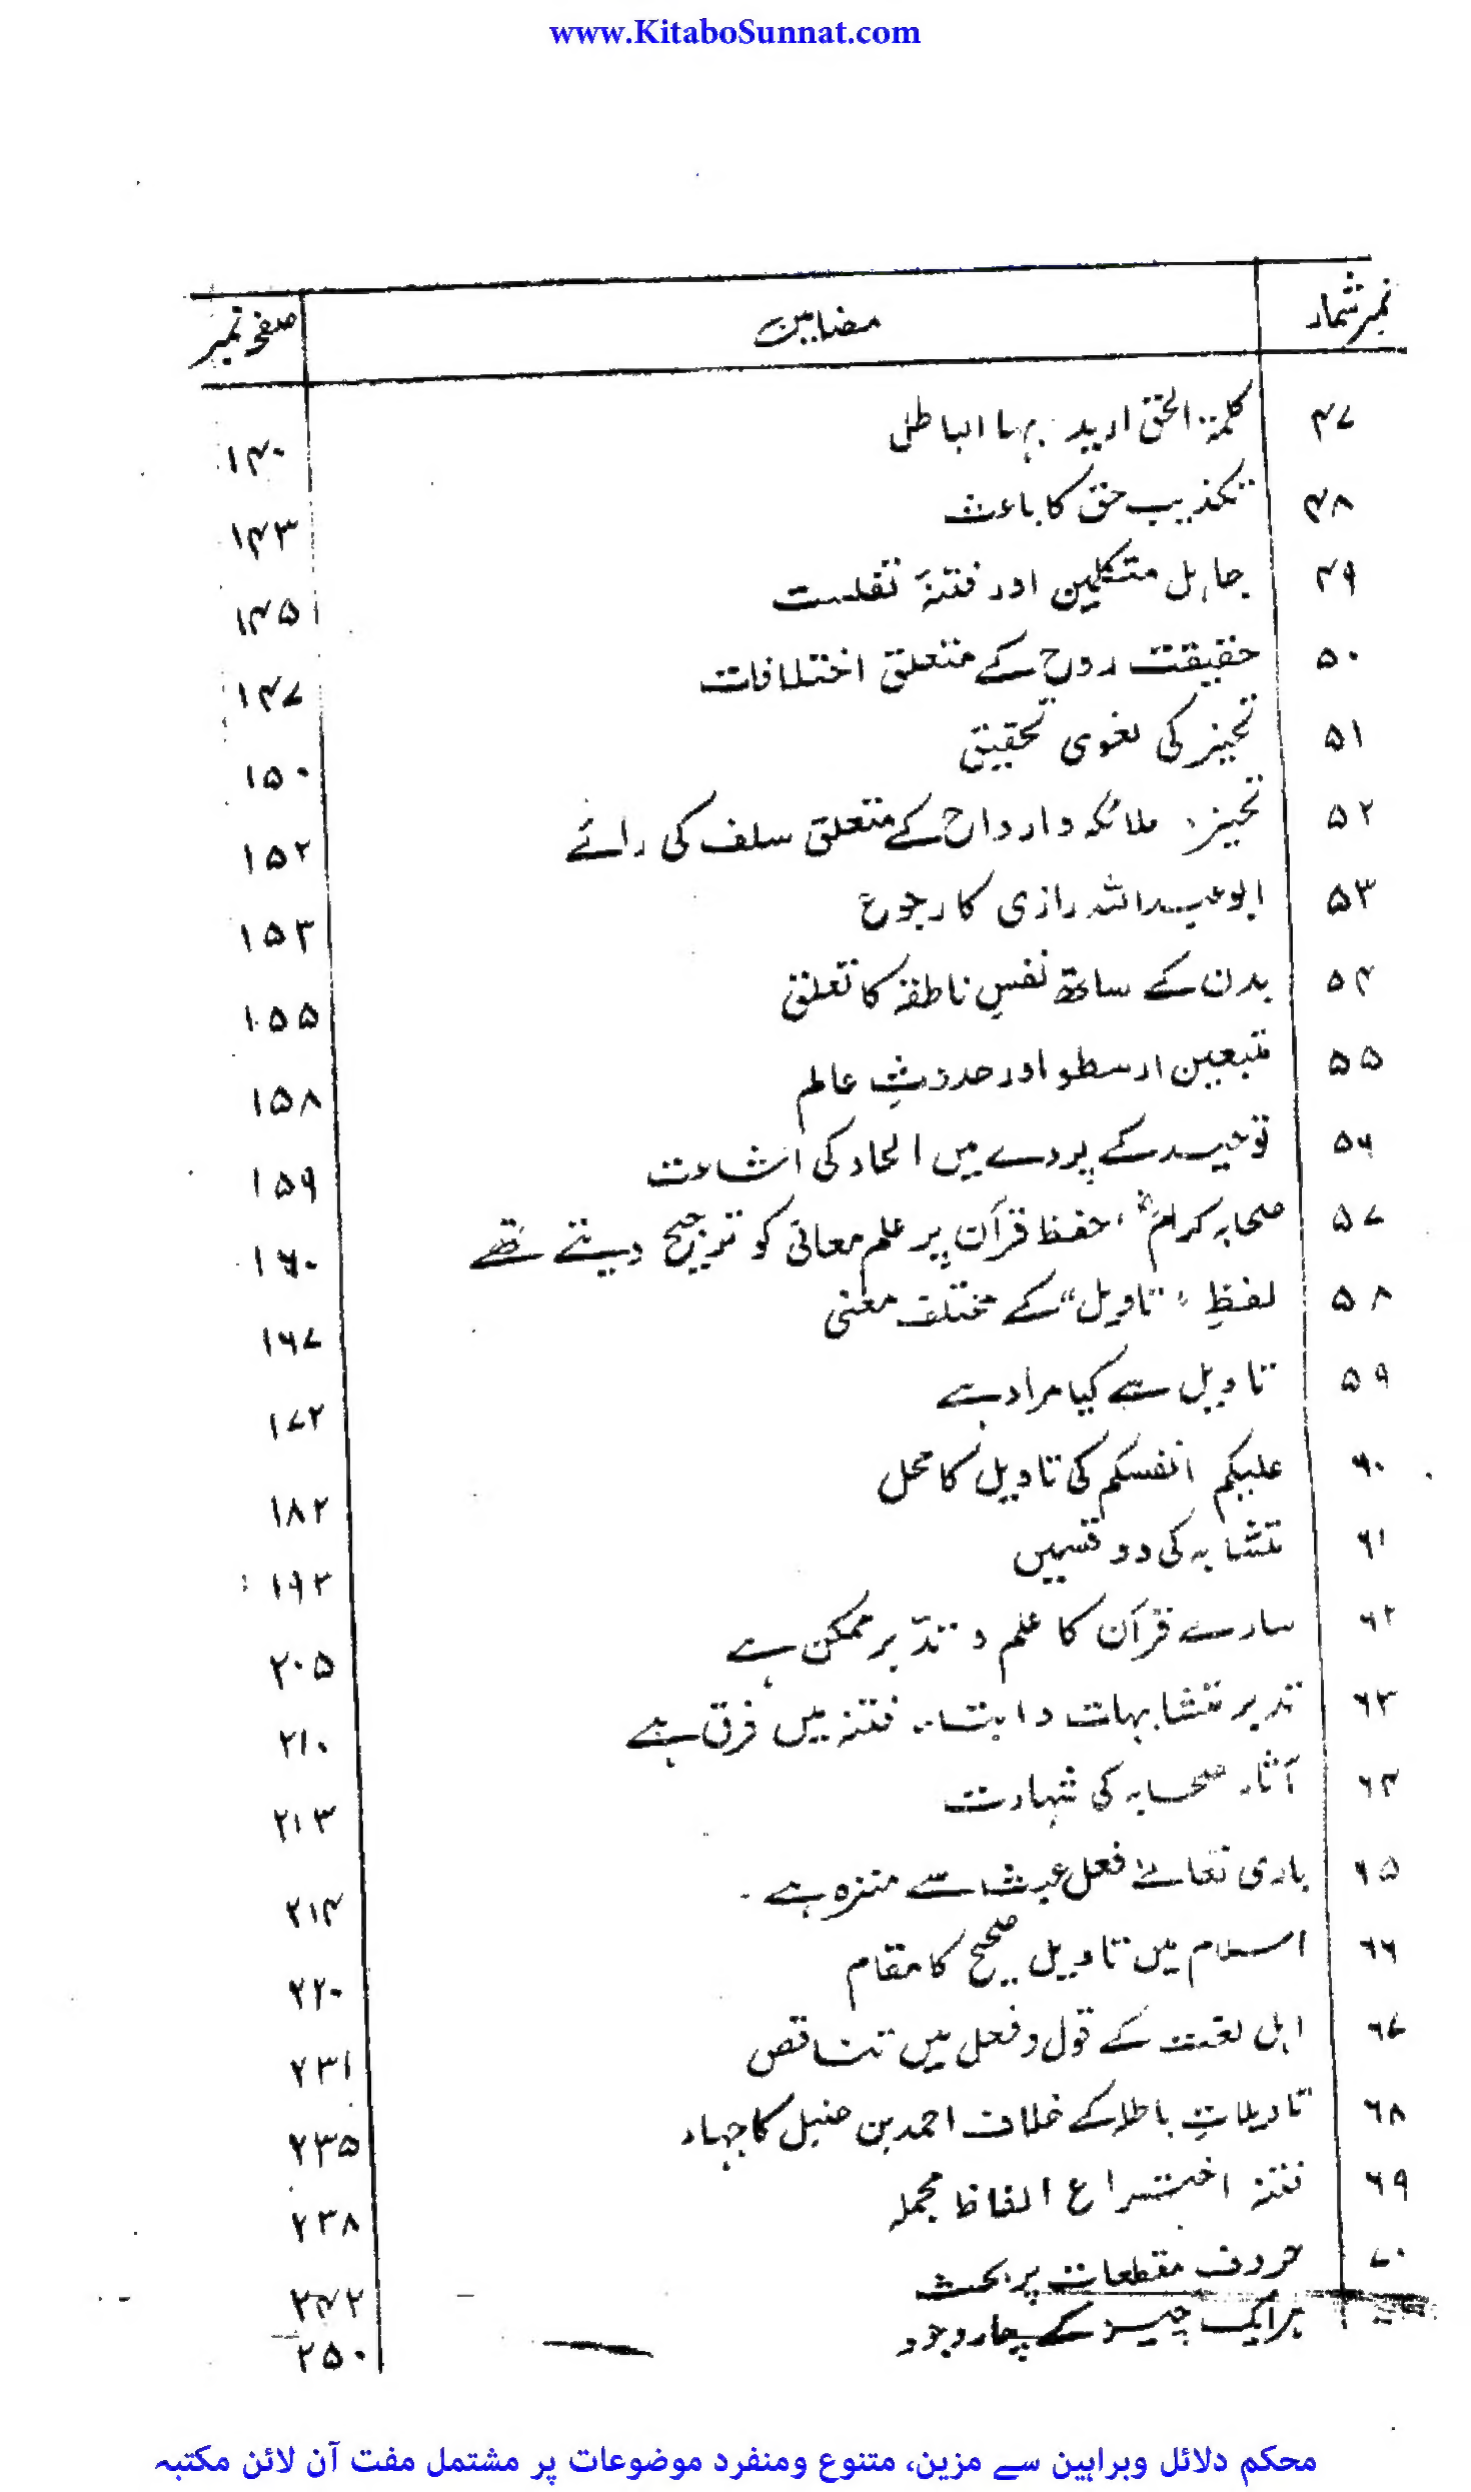 www.KitaboSunnat.com
نمبر شمار مضامین صفحہ نمبر
۴۷ کلمۃ الحق ارید بہا الباطل ۱۴۰
۴۸ تکذیب حق کا باعث ۱۴۳
۴۹ جاہل متکلمین اور فتنۂ تفلست ۱۴۵
۵۰ حقیقت روح کے متعلق اختلافات ۱۴۷
۵۱ تحیز کی لغوی تحقیق ۱۵۰
۵۲ تحیز، ملائکہ و ارواح کے متعلق سلف کی رائے ۱۵۲
۵۳ ابو عبداللہ رازی کا رجوع ۱۵۳
۵۴ بدن کے ساتھ نفسِ ناطقہ کا تعلق ۱۵۵
۵۵ متبعین ارسطو اور حدوثِ عالم ۱۵۸
۵۶ توحید کے پردے میں الحاد کی اشاعت ۱۵۹
۵۷ صحابہ کرامؓ، حفظ قرآن پر علم معانی کو ترجیح دیتے تھے ۱۶۰
۵۸ لفظِ "تاویل" کے مختلف معنی ۱۶۷
۵۹ تاویل سے کیا مراد ہے ۱۷۲
۶۰ علیکم انفسکم کی تاویل کا محل ۱۸۲
۶۱ متشابہ کی دو قسمیں ۱۹۲
۶۲ سارے قرآن کا علم و تدّبر ممکن ہے ۲۰۵
۶۳ تدبر متشابہات و ابتغاء فتنہ میں فرق ہے ۲۱۰
۶۴ آثار صحابہ کی شہادت ۲۱۳
۶۵ باری تعالےٰ فعل عبث سے منزہ ہے۔ ۲۱۴
۶۶ اسلام میں تاویل صحیح کا مقام ۲۲۰
۶۷ اہل لغت کے قول و فعل میں تناقص ۲۳۱
۶۸ تاویلاتِ باطلہ کے خلاف احمد بن حنبل کا جہاد ۲۳۵
۶۹ فتنہ اختراع الفاظ مجملہ ۲۳۸
۷۰ حروف مقطعات پر بحث ۲۴۲
ہر ایک چیز کے چار وجود ۲۵۰
محکم دلائل وبراہین سے مزین، متنوع ومنفرد موضوعات پر مشتمل مفت آن لائن مکتبہ